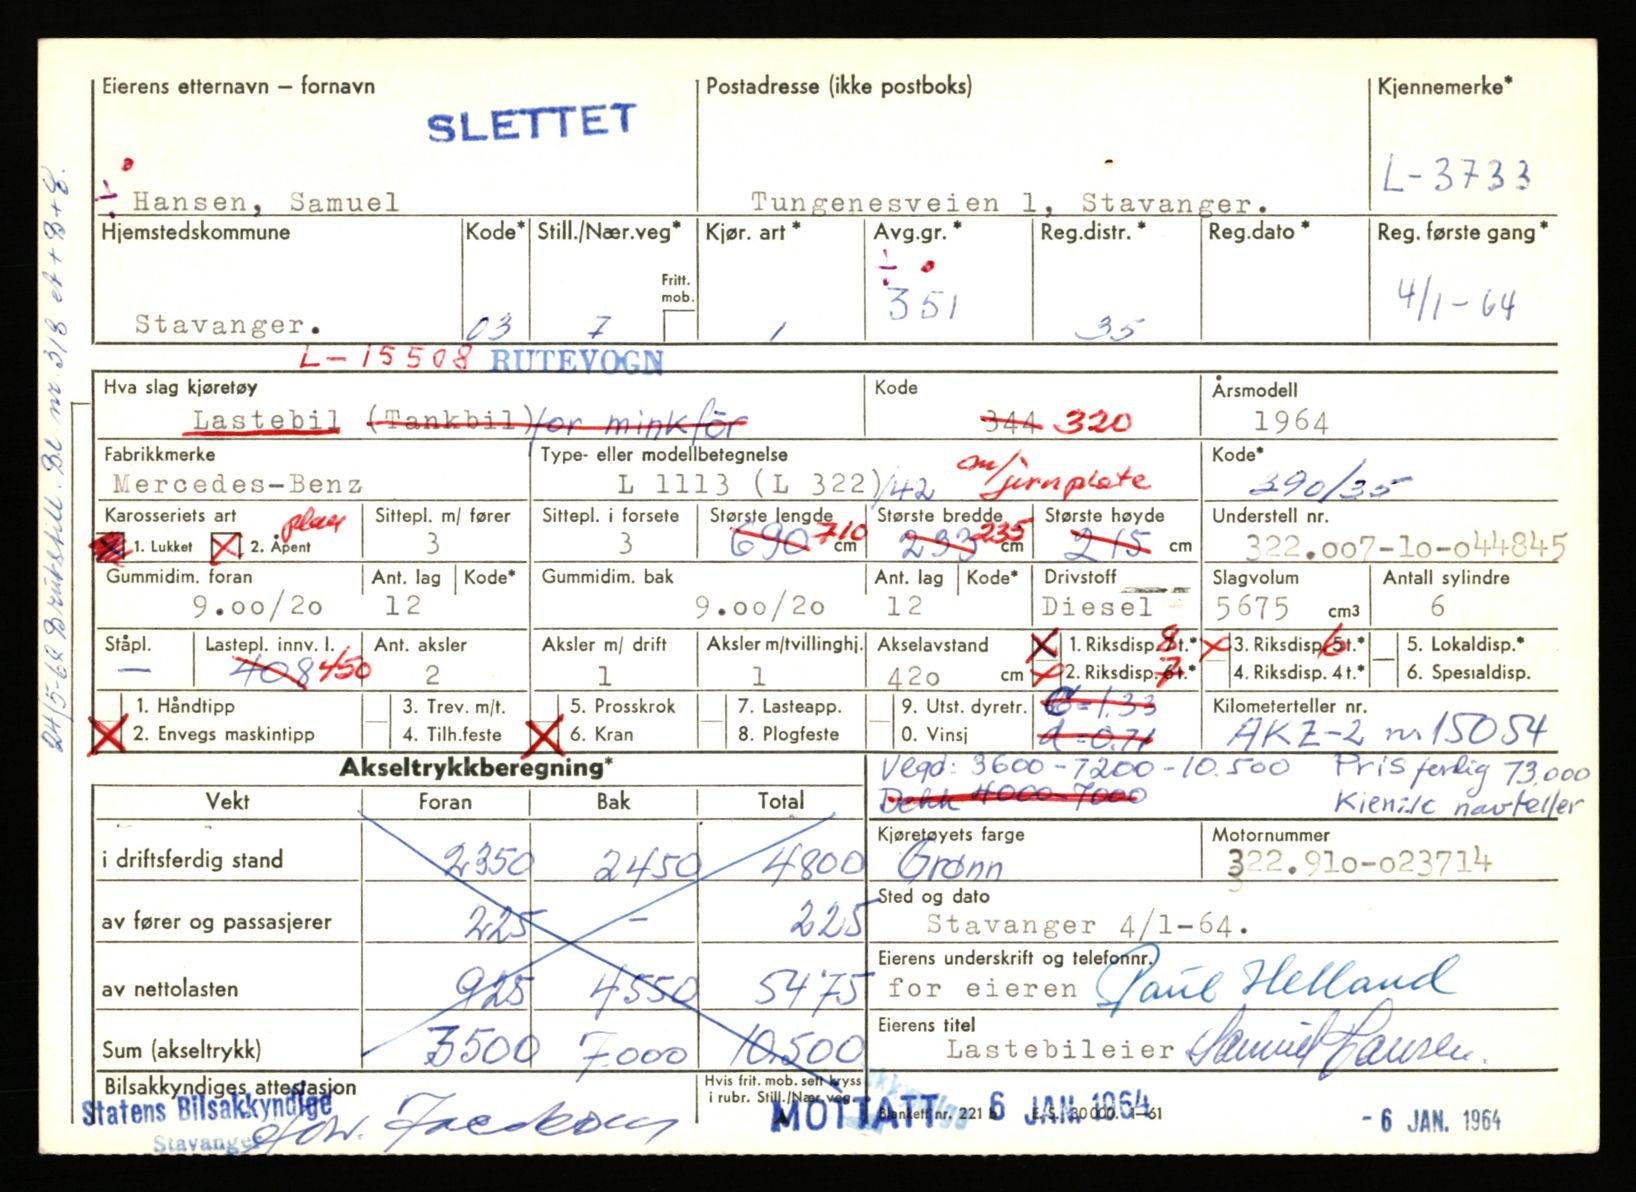 Eierens etternavn – fornavn Postadresse (ikke postboks) Kjennemerke*
SLETTET
L-3733
Hansen, Samuel Tungenesveien 1, Stavanger.
Hjemstedskommune Kode* Still./Nær.veg* Kjør. art* Avg.gr.* Reg.distr.* Reg.dato* Reg. første gang*
Fritt. mob.
Stavanger. 03 7 1 351 35 4/1-64
L-15508 RUTEVOGN
Hva slag kjøretøy Kode Årsmodell
Lastebil (Tankbil) for minkfôr 344 320 1964
Fabrikkmerke Type- eller modellbetegnelse Kode*
Mercedes-Benz L 1113 (L 322)/42 m/jernplate 390/35
Karosseriets art plan Sittepl. m/ fører Sittepl. i forsete Største lengde Største bredde Største høyde Understell nr.
1. Lukket 2. Åpent 3 3 690 710 cm 233 235 cm 215 cm 322.007-10-044845
Gummidim. foran Ant. lag Kode* Gummidim. bak Ant. lag Kode* Drivstoff Slagvolum Antall sylindre
9.00/20 12 9.00/20 12 Diesel 5675 cm3 6
Ståpl. Lastepl. innv. l. Ant. aksler Aksler m/ drift Aksler m/tvillinghj. Akselavstand 1. Riksdisp. 8 t.* 3. Riksdisp. 5t.* 6 5. Lokaldisp.*
— 408 450 2 1 1 420 cm 2. Riksdisp. 6t.* 7 4. Riksdisp. 4t.* 6. Spesialdisp.
1. Håndtipp 3. Trev. m/t. 5. Prosskrok 7. Lasteapp. 9. Utst. dyretr. C=1.33 Kilometerteller nr.
2. Envegs maskintipp 4. Tilh.feste 6. Kran 8. Plogfeste 0. Vinsj d=0.71 AKZ-2 nr 15054
Akseltrykkberegning* Vegd: 3600-7200-10.500 Pris ferdig 73.000
Dekk 4000-7000 Kienzle navteller
Vekt Foran Bak Total
Kjøretøyets farge Motornummer
i driftsferdig stand 2350 2450 4800 Grønn 322.910-023714
Sted og dato
av fører og passasjerer 225 - 225 Stavanger 4/1-64.
Eierens underskrift og telefonnr.
av nettolasten 925 4550 5475 for eieren Paul Helland
Eierens titel
Sum (akseltrykk) 3500 7.000 10.500 Lastebileier Samuel Hansen.
Bilsakkyndiges attestasjon Hvis frit. mob. sett kryss
i rubr. Still./Nær.veg.
Statens Bilsakkyndige MOTTATT 6 JAN 1964 Blankett nr. 221 -6 JAN. 1964
Stavanger
24/5-68 Brukstill. Bl nr. 318